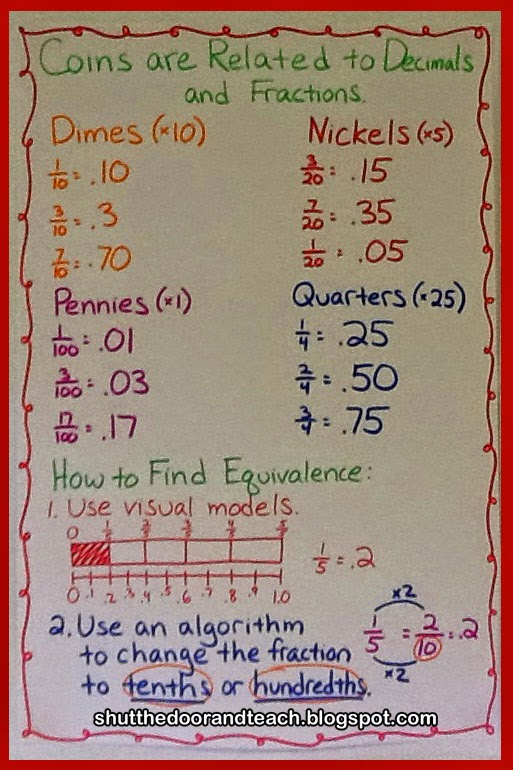 Coins are Related to Decimals
and Fractions.
Dimes (×10)
1/10 = .10
3/10 = .3
7/10 = .70
Nickels (×5)
3/20 = .15
7/20 = .35
1/20 = .05
Pennies (×1)
1/100 = .01
3/100 = .03
17/100 = .17
Quarters (×25)
1/4 = .25
2/4 = .50
3/4 = .75
How to Find Equivalence:
1. Use visual models.
0 1/5 2/5 3/5 4/5 5/5
0 .1 .2 .3 .4 .5 .6 .7 .8 .9 1.0
1/5 = .2
2. Use an algorithm
to change the fraction
to tenths or hundredths.
×2
1/5 = 2/10 = .2
×2
shutthedoorandteach.blogspot.com